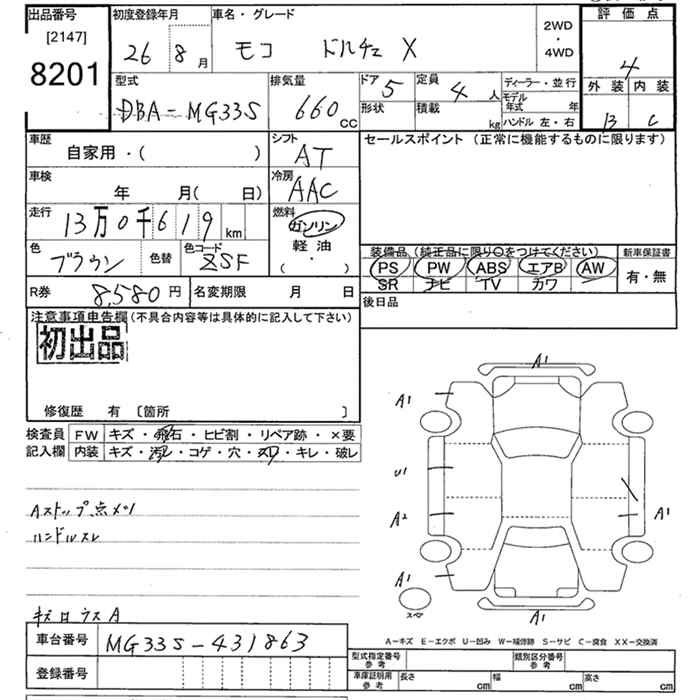 出品番号
[2147]
8201
初度登録年月
26 8月
車名・グレード
モコ ドルチェ X
2WD
・
4WD
評価点
4
外装 内装
B C
型式
DBA-MG33S
排気量
660 CC
ドア 5
定員 4 人
形状
積載 kg
ディーラー・並行
モデル年式 年
ハンドル 左・右
車歴
自家用・( )
シフト
AT
セールスポイント (正常に機能するものに限ります)
車検
年 月( 日)
冷房
AAC
走行
13万0千619 km
燃料
ガソリン
軽油
( ・ )
色
ブラウン
色替
色コード
ZSF
装備品 (純正品に限り○をつけてください)
PS PW ABS エアB AW
SR ナビ TV カワ
新車保証書
有・無
R券 8,580円
名変期限 月 日
後日品
注意事項申告欄(不具合内容等は具体的に記入して下さい)
初出品
修復歴 有 〔箇所 〕
検査員記入欄
FW キズ・飛石・ヒビ割・リペア跡・×要
内装 キズ・汚レ・コゲ・穴・スレ・キレ・破レ
Aストップ点メツ
ハンドルスレ
A1
A1
U1
A2
A1
A1
A1
スペア
A-キズ E-エクボ U-凹み W-補修跡 S-サビ C-腐食 XX-交換済
車台番号 MG33S-431863
登録番号
型式指定番号 参考
類別区分番号 参考
車庫証明用 参考
長さ cm
幅 cm
高さ cm